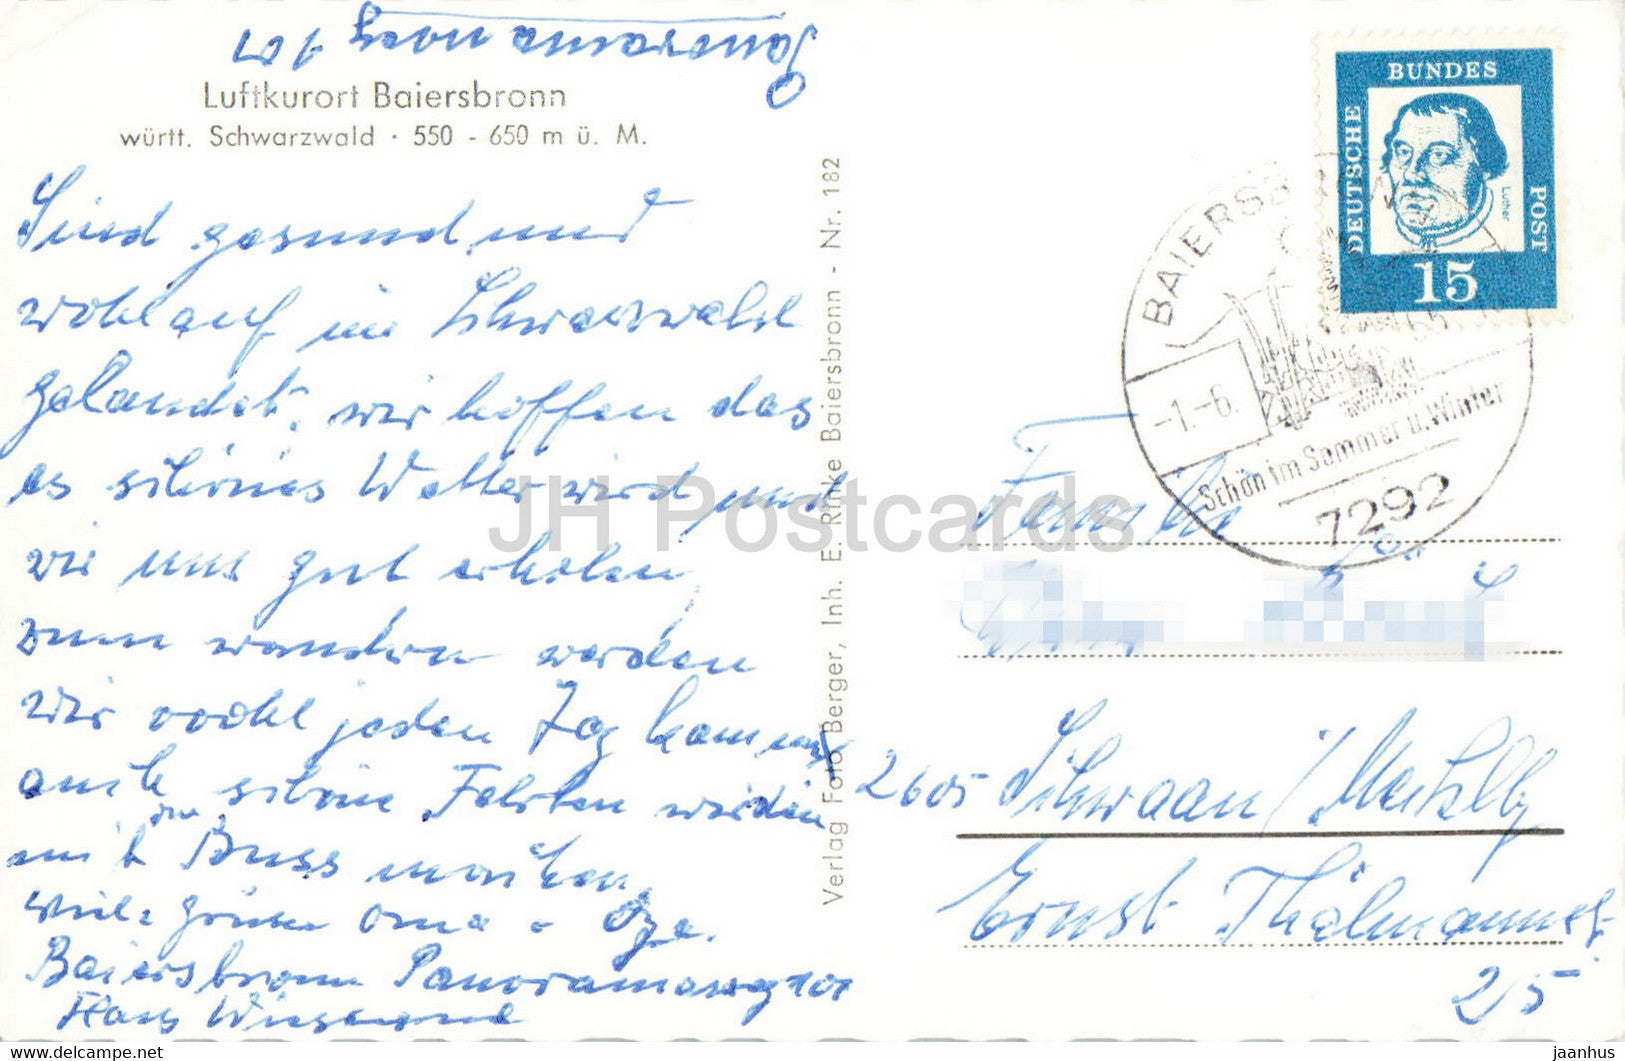 Panoramaweg 101
Luftkurort Baiersbronn
württ. Schwarzwald · 550 - 650 m ü. M.
Sind gesund und
wohlauf im Schwarzwald
gelandet, wir hoffen das
es schönes Wetter wird und
wir uns gut erholen,
zum wandern werden
wir wohl jeden Tag kommen
auch schöne Fahrten werden
mit den Buss machen,
viele grüsse Oma u Opa.
Baiersbronn Panoramaweg 101
Haus
Verlag Foto Berger, Inh. E. Rinke Baiersbronn - Nr. 182
DEUTSCHE
BUNDES
POST
Luther
15
BAIERSB
-1.-6.
Schön im Sommer u. Winter
7292
Familie
2605 Schwaan / Mecklbg
Ernst Thälmannstr.
2/5
JH Postcards
www.delcampe.net
jaanhus